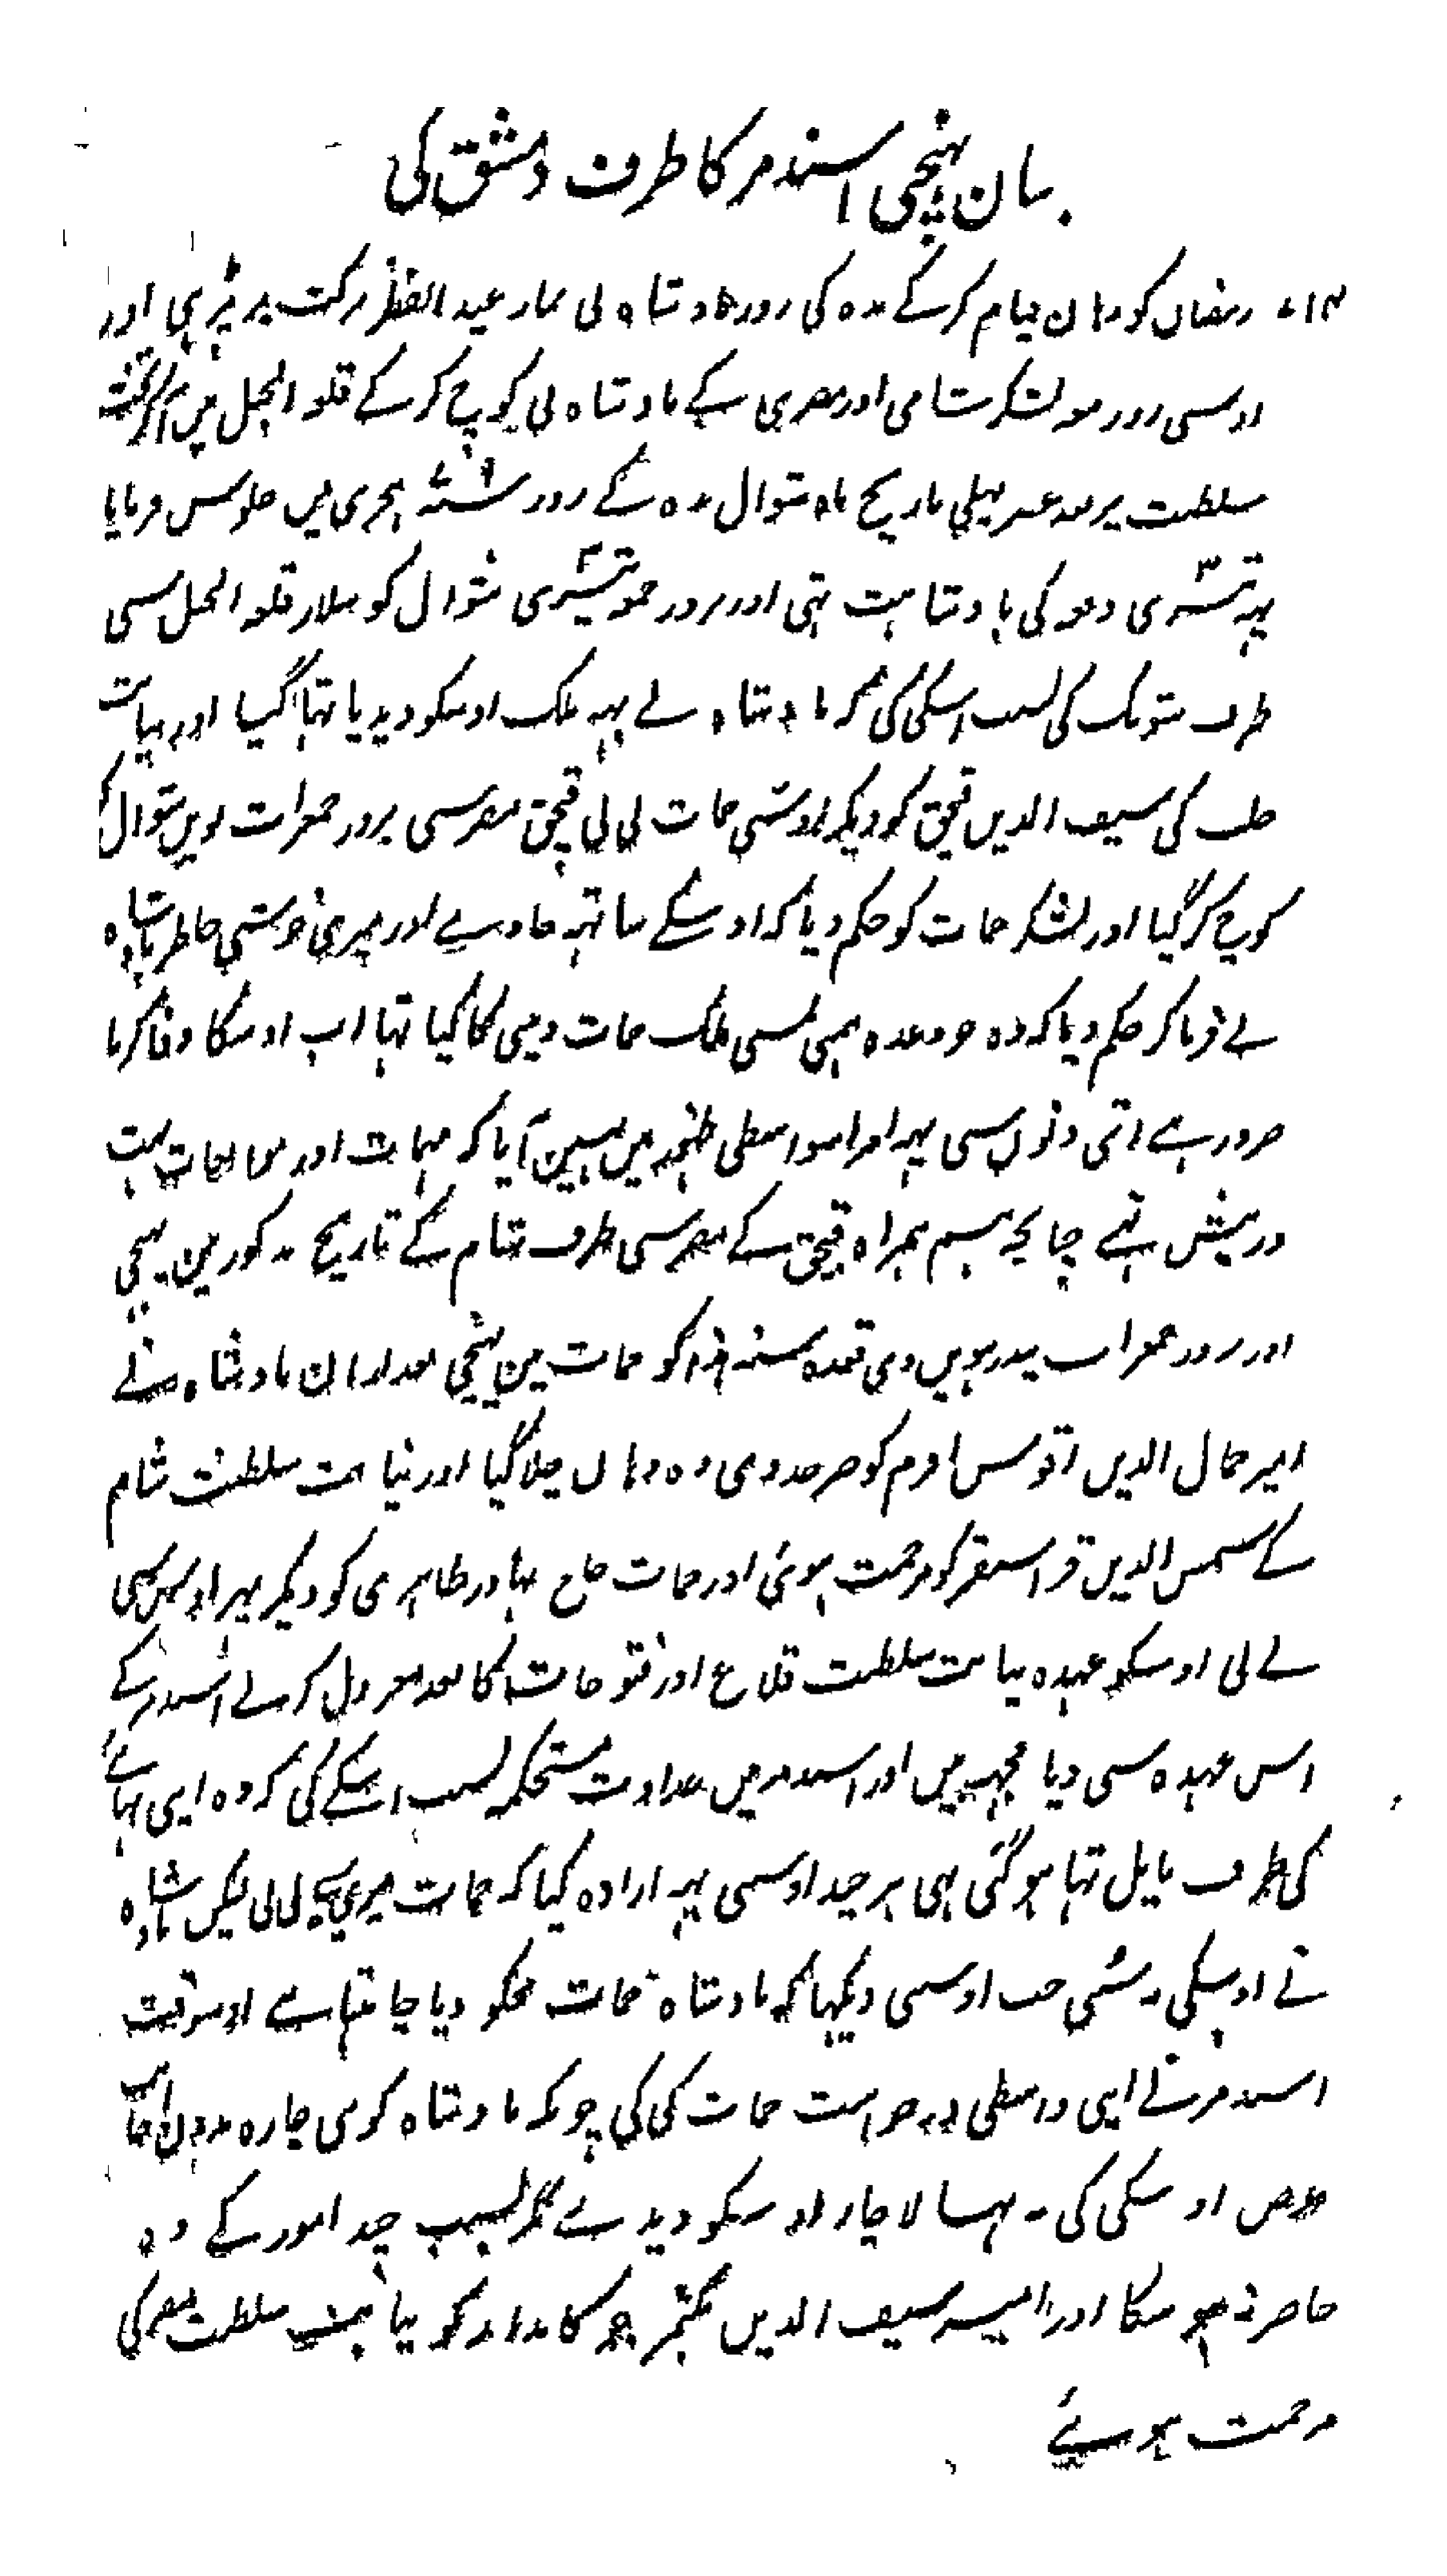 بیان پہنچی اسندمر کا طرف دمشق کی
رمضان کو وہان قیام کرکے بدہ کی روز بادشاہ نی نماز عید الفطر برکت پر پڑہی اور
اوسی روز معہ لشکر شامی اور مصری کے بادشاہ نی کوچ کر کے قلعہ الجبل میں آکر تخت
سلطنت پر بعد عصر پہلی تاریخ ماہ شوال بدہ کے روز ہجری میں جلوس فرمایا
یہہ تیسری دفعہ کی بادشاہت تہی اور بروز جمعہ تیسری شوال کو سلار قلعہ الجبل سی
طرف شوبک کی بسبب اسکی کی کہ بادشاہ نے یہہ ملک اوسکو دیدیا تہا گیا اور نیابت
حلب کی سیف الدین قبجق کو دیکر اوسنی حمات لی لی قبجق مصر سی بروز جمعرات نویں شوال کو
کوچ کر گیا اور لشکر حمات کو حکم دیا کہ اوسکے ساتہہ جاوے اور میری خوشی خاطر بادشاہ
نے فرما کر حکم دیا کہ وہ جو وعدہ ہمنی تمسی ملک حمات دینی کا کیا تہا اب اوسکا وفا کرنا
ضرور ہے اتنی دنوں سی یہہ امر اسواسطی ظہور میں نہین آیا کہ مہمات اور معاملات بہت
درپیش تہے چنانچہ ہم ہمراہ قبجق کے مصر سی طرف شام کے تاریخ مذکور مین پہنچی
اور بروز جمعرات پندرہویں ذی قعدہ سنہ ہذا کو حمات مین پہنچی بعد ازان بادشاہ نے
امیر جمال الدین اقوس افرم کو صرخد دی وہ وہاں چلا گیا اور نیابت سلطنت شام
کے شمس الدین قراسنقر کو مرحمت ہوئی اور حمات حاج بہادر ظاہری کو دیکر پہر اوس سی
لے لی اوسکو عہدہ نیابت سلطنت قلاع اور فتوحات کا بعد معزول کرنے اسندمر کے
اس عہدہ سی دیا مجہہ میں اور اسندمر میں عداوت مستحکم بسبب اسکے کی کہ وہ اپنی بہائے
کی طرف مایل تہا ہو گئی تہی ہر چند اوسنی یہہ ارادہ کیا کہ حمات میری لی لی لیکن بادشاہ
نے اوسکی نہ سنی جب اوسنی دیکہا کہ بادشاہ حمات مجکو دیا چاہتا ہے اوسوقت
اسندمر نے اپنی واسطی درخواست حمات کی کی چونکہ بادشاہ کو کوئی چارہ بدون اجابت
عرض اوسکی کی نہ تہا لاچار اوسکو دیدے مگر بسبب چند امور کے وہ
حاضر نہ ہو سکا اور امیر سیف الدین بکتمر جوکاندار کو نیابت سلطنت مصر کی
مرحمت ہوئے